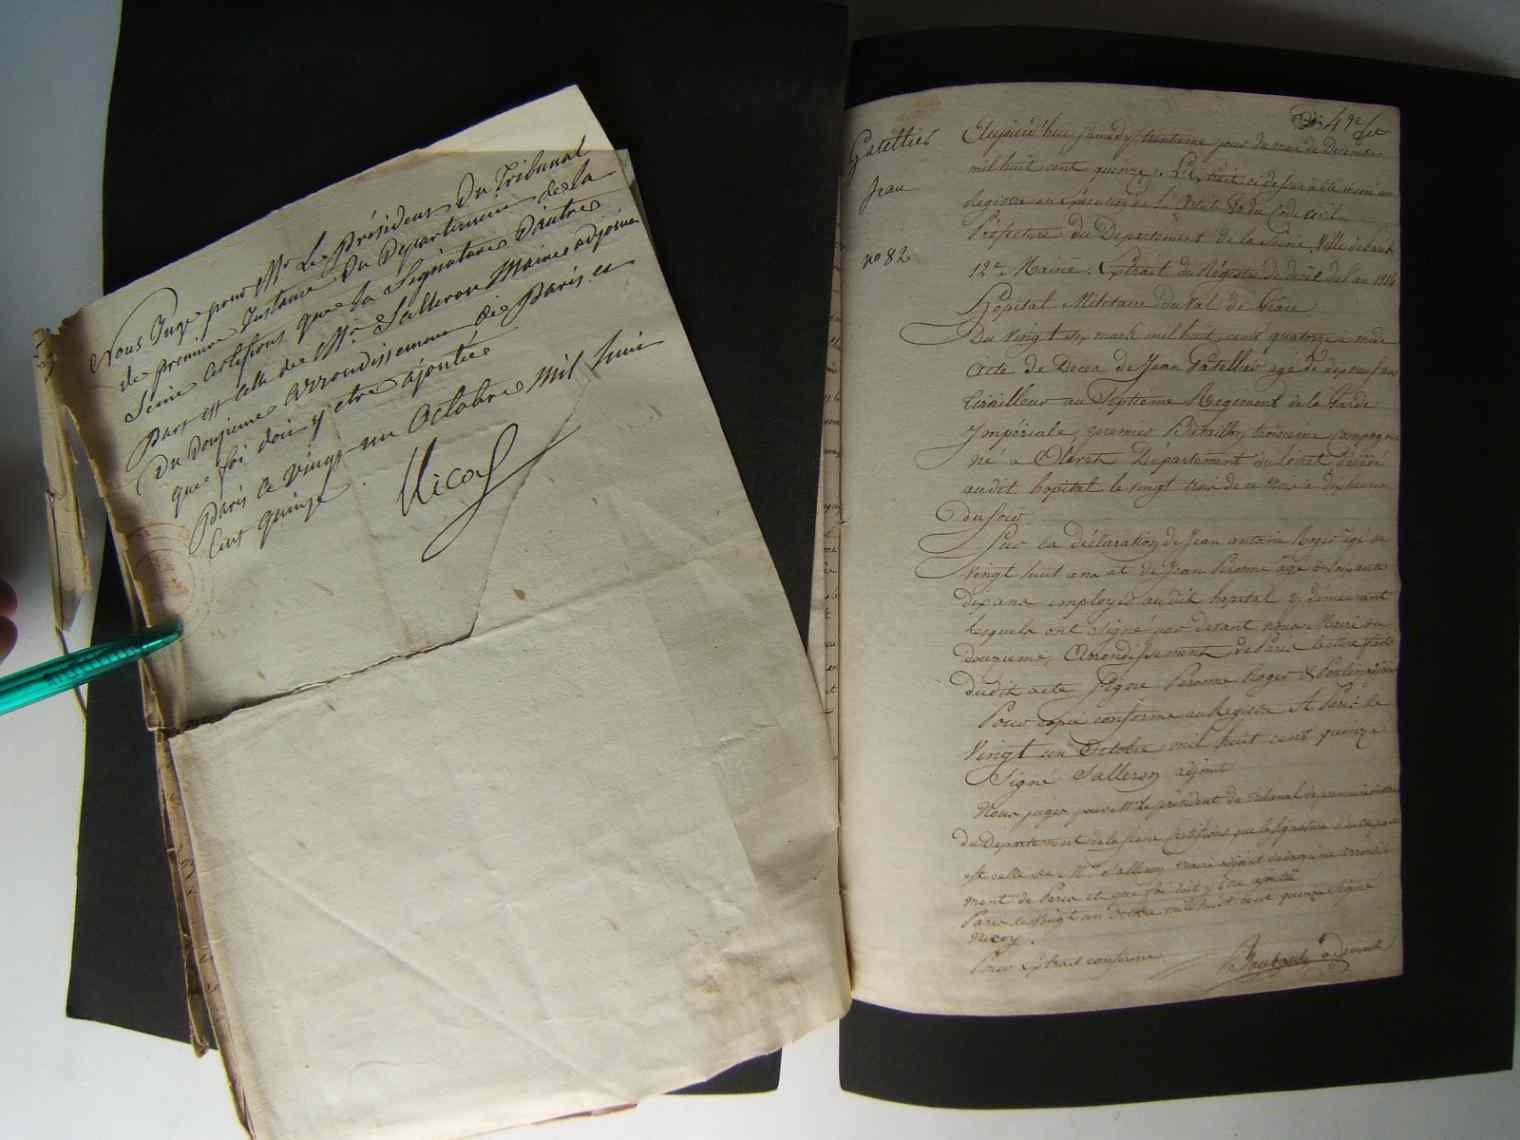 Nous Juge pour Mr Le Président Du Tribunal
de premiere Instance Du Département de la
Seine Certifions que la Signature D'autre
Part est celle de Mr Salleron Maire adjoint
Du douzieme arrondissement de Paris et
que foi doit y etre ajoutée
Paris ce vingt un Octobre mil huit
Cent quinze.
Nicoy
Gatellier
Jean
no 82
49e
Aujourd'hui samedy trentieme jour du mois de Decembre
mil huit cent quinze. L'Extrait ci dessus a été inscrit au
Registre en Execution de l'Article du Code Civil
Préfecture du Departement de la Seine Ville de Paris
12e Mairie. Extrait du Régistre de décès de l'an 1814
Hôpital Militaire Du Val de Grâce
Du Vingt six mars mil huit cent quatorze midi
Acte de Décès de Jean Gatellier agé de
tirailleur au Septieme Regiment de la Garde
Impériale, premier Bataillon, troisieme compagnie
né a Olivet Département du Loiret Décédé
audit hopital le vingt trois de ce mois a dix heures
du soir
Sur la déclaration de Jean antoine Roger âgé de
Vingt huit ans et de Jean Peronne âgé de soixante
Dix ans employés audit hopital y demeurant
lesquels ont signé par devant nous Maire du
Douzieme, Arrondissement de Paris lecture faite
dudit acte Signé Peronne Roger &
Pour copie conforme au Registre A Paris le
Vingt un Octobre mil huit cent quinze
Signé Salleron adjoint
Nous juges pour Mr le président du tribunal de premiere instance
du Departement de la Seine Certifions que la signature d'autre part
est celle de Mr Salleron Maire adjoint du douzieme arrondisse
ment de Paris et que foi doit y être ajoutée
Paris le Vingt un Octobre mil huit cent quinze Signé
Nicoy.
Pour Extrait conforme